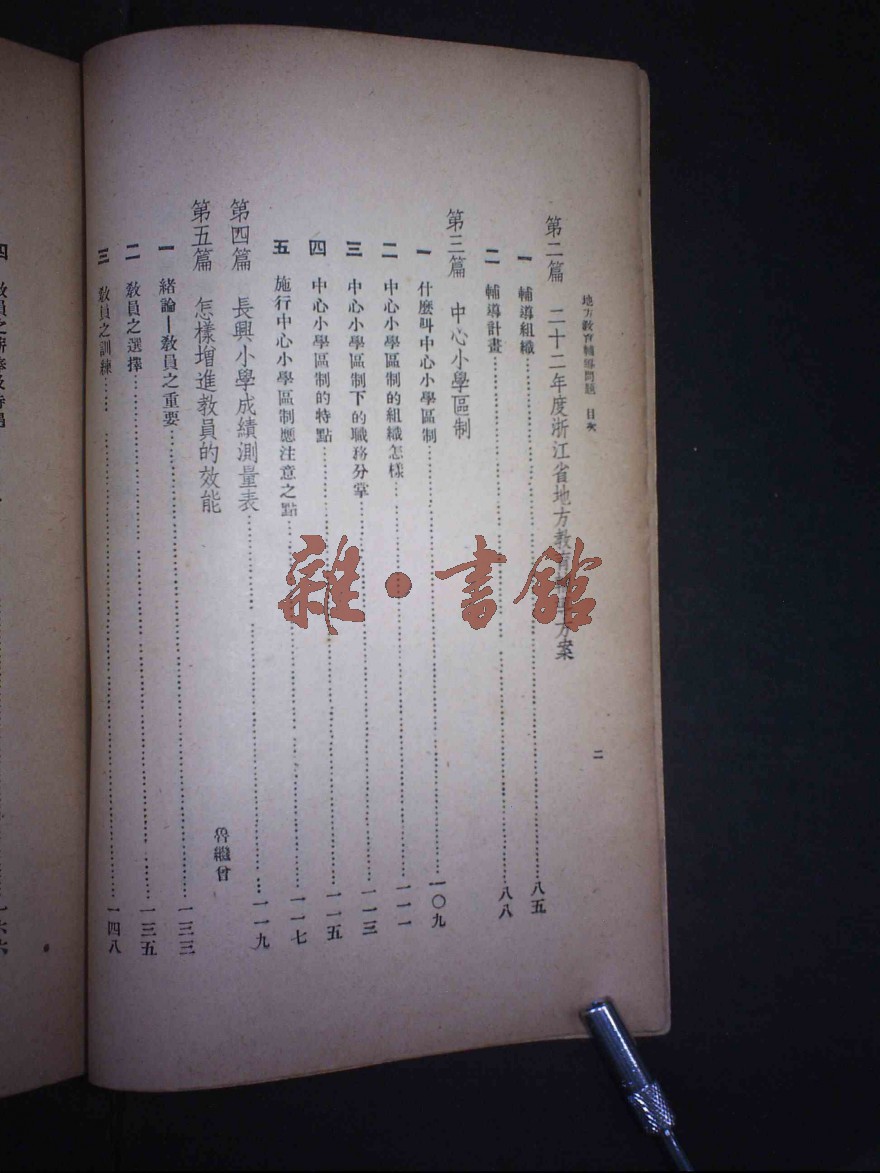 地方教育輔導問題　目次
二
第二篇　二十二年度浙江省地方教育輔導方案
一　輔導組織……八五
二　輔導計畫……八八
第三篇　中心小學區制
一　什麼叫中心小學區制……一〇九
二　中心小學區制的組織怎樣……一一一
三　中心小學區制下的職務分掌……一一三
四　中心小學區制的特點……一一五
五　施行中心小學區制應注意之點……一一七
第四篇　長興小學成績測量表……一一九
第五篇　怎樣增進教員的效能　魯繼曾
一　緒論—教員之重要……一三三
二　教員之選擇……一三五
三　教員之訓練……一四八
四　教員之
雜·書館